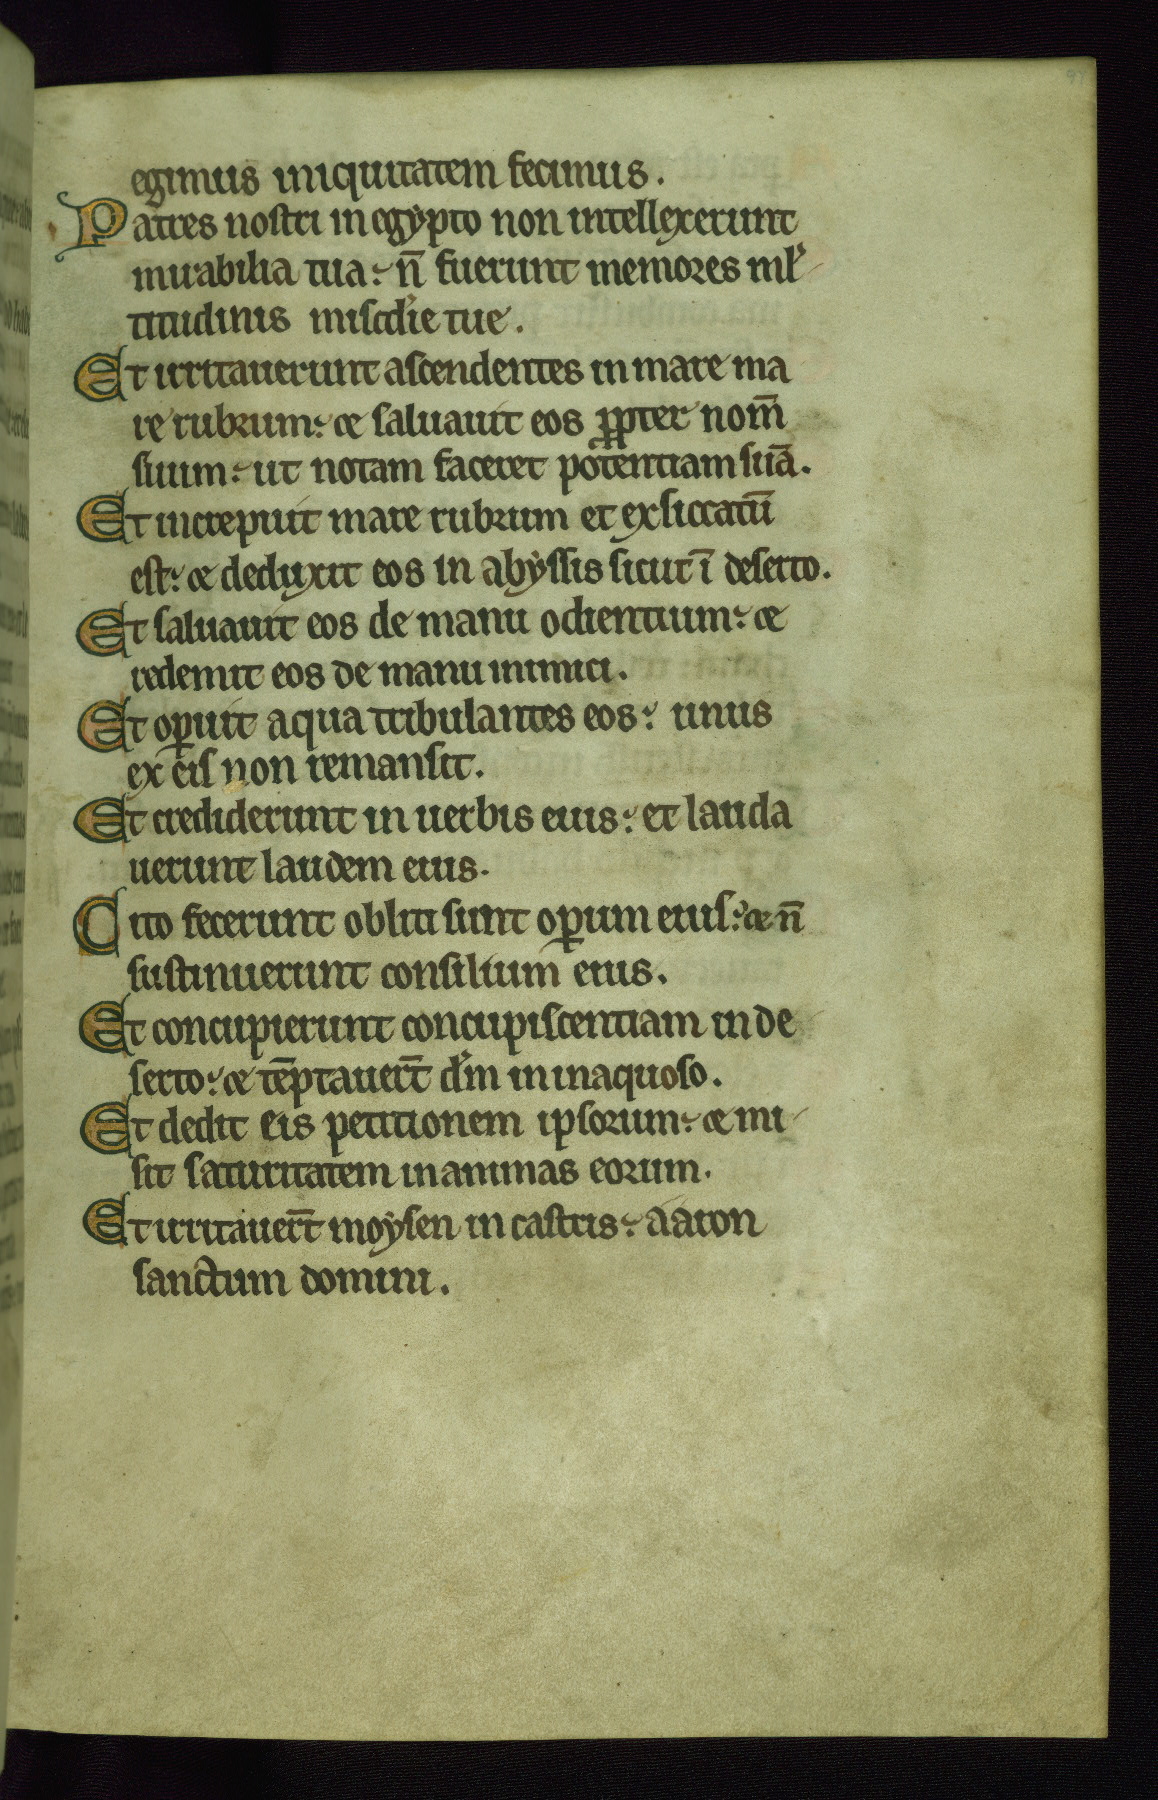 egimus iniquitatem fecimus.
Patres nostri in egypto non intellexerunt
mirabilia tua: n̄ fuerunt memores ml̓
titudinis miscd̓ie tue.
Et irritauerunt ascendentes in mare ma
re rubrum: et saluauit eos ꝓpter nom̄
suum: ut notam faceret potentiam suā.
Et increpuit mare rubrum et exsiccatū
est: et deduxit eos in abyssis sicut ī deserto.
Et saluauit eos de manu odientium: et
redemit eos de manu inimici.
Et oꝑuit aqua tribulantes eos: unus
ex eis non remansit.
Et crediderunt in uerbis eius: et lauda
uerunt laudem eius.
Cito fecerunt obliti sunt oꝑum eius: et n̄
sustinuerunt consilium eius.
Et concupierunt concupiscentiam in de
serto: et tēptauer̄t d̓m in inaquoso.
Et dedit eis petitionem ipsorum: et mi
sit saturitatem in animas eorum.
Et irritauer̄t moysen in castris: aaron
sanctum domini.